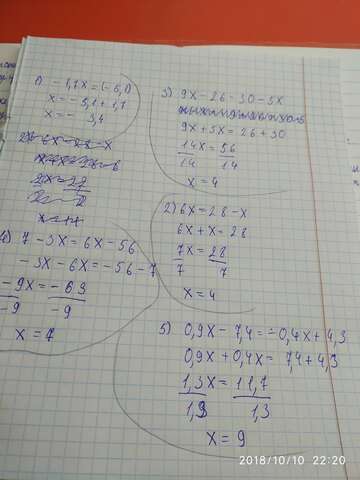 1) -1,7x = (-5,1)
x = -5,1 + 1,7
x = - 3,4
4) 7 - 3x = 6x - 56
-3x - 6x = -56 - 7
-9x = -63
-9 -9
x = 7
3) 9x - 26 - 30 - 5x
9x + 5x = 26 + 30
14x = 56
14 14
x = 4
2) 6x = 28 - x
6x + x = 28
7x = 28
7 7
x = 4
5) 0,9x - 7,4 = -0,4x + 4,3
0,9x + 0,4x = 7,4 + 4,3
1,3x = 11,7
1,3 1,3
x = 9
2018/10/10 22:20